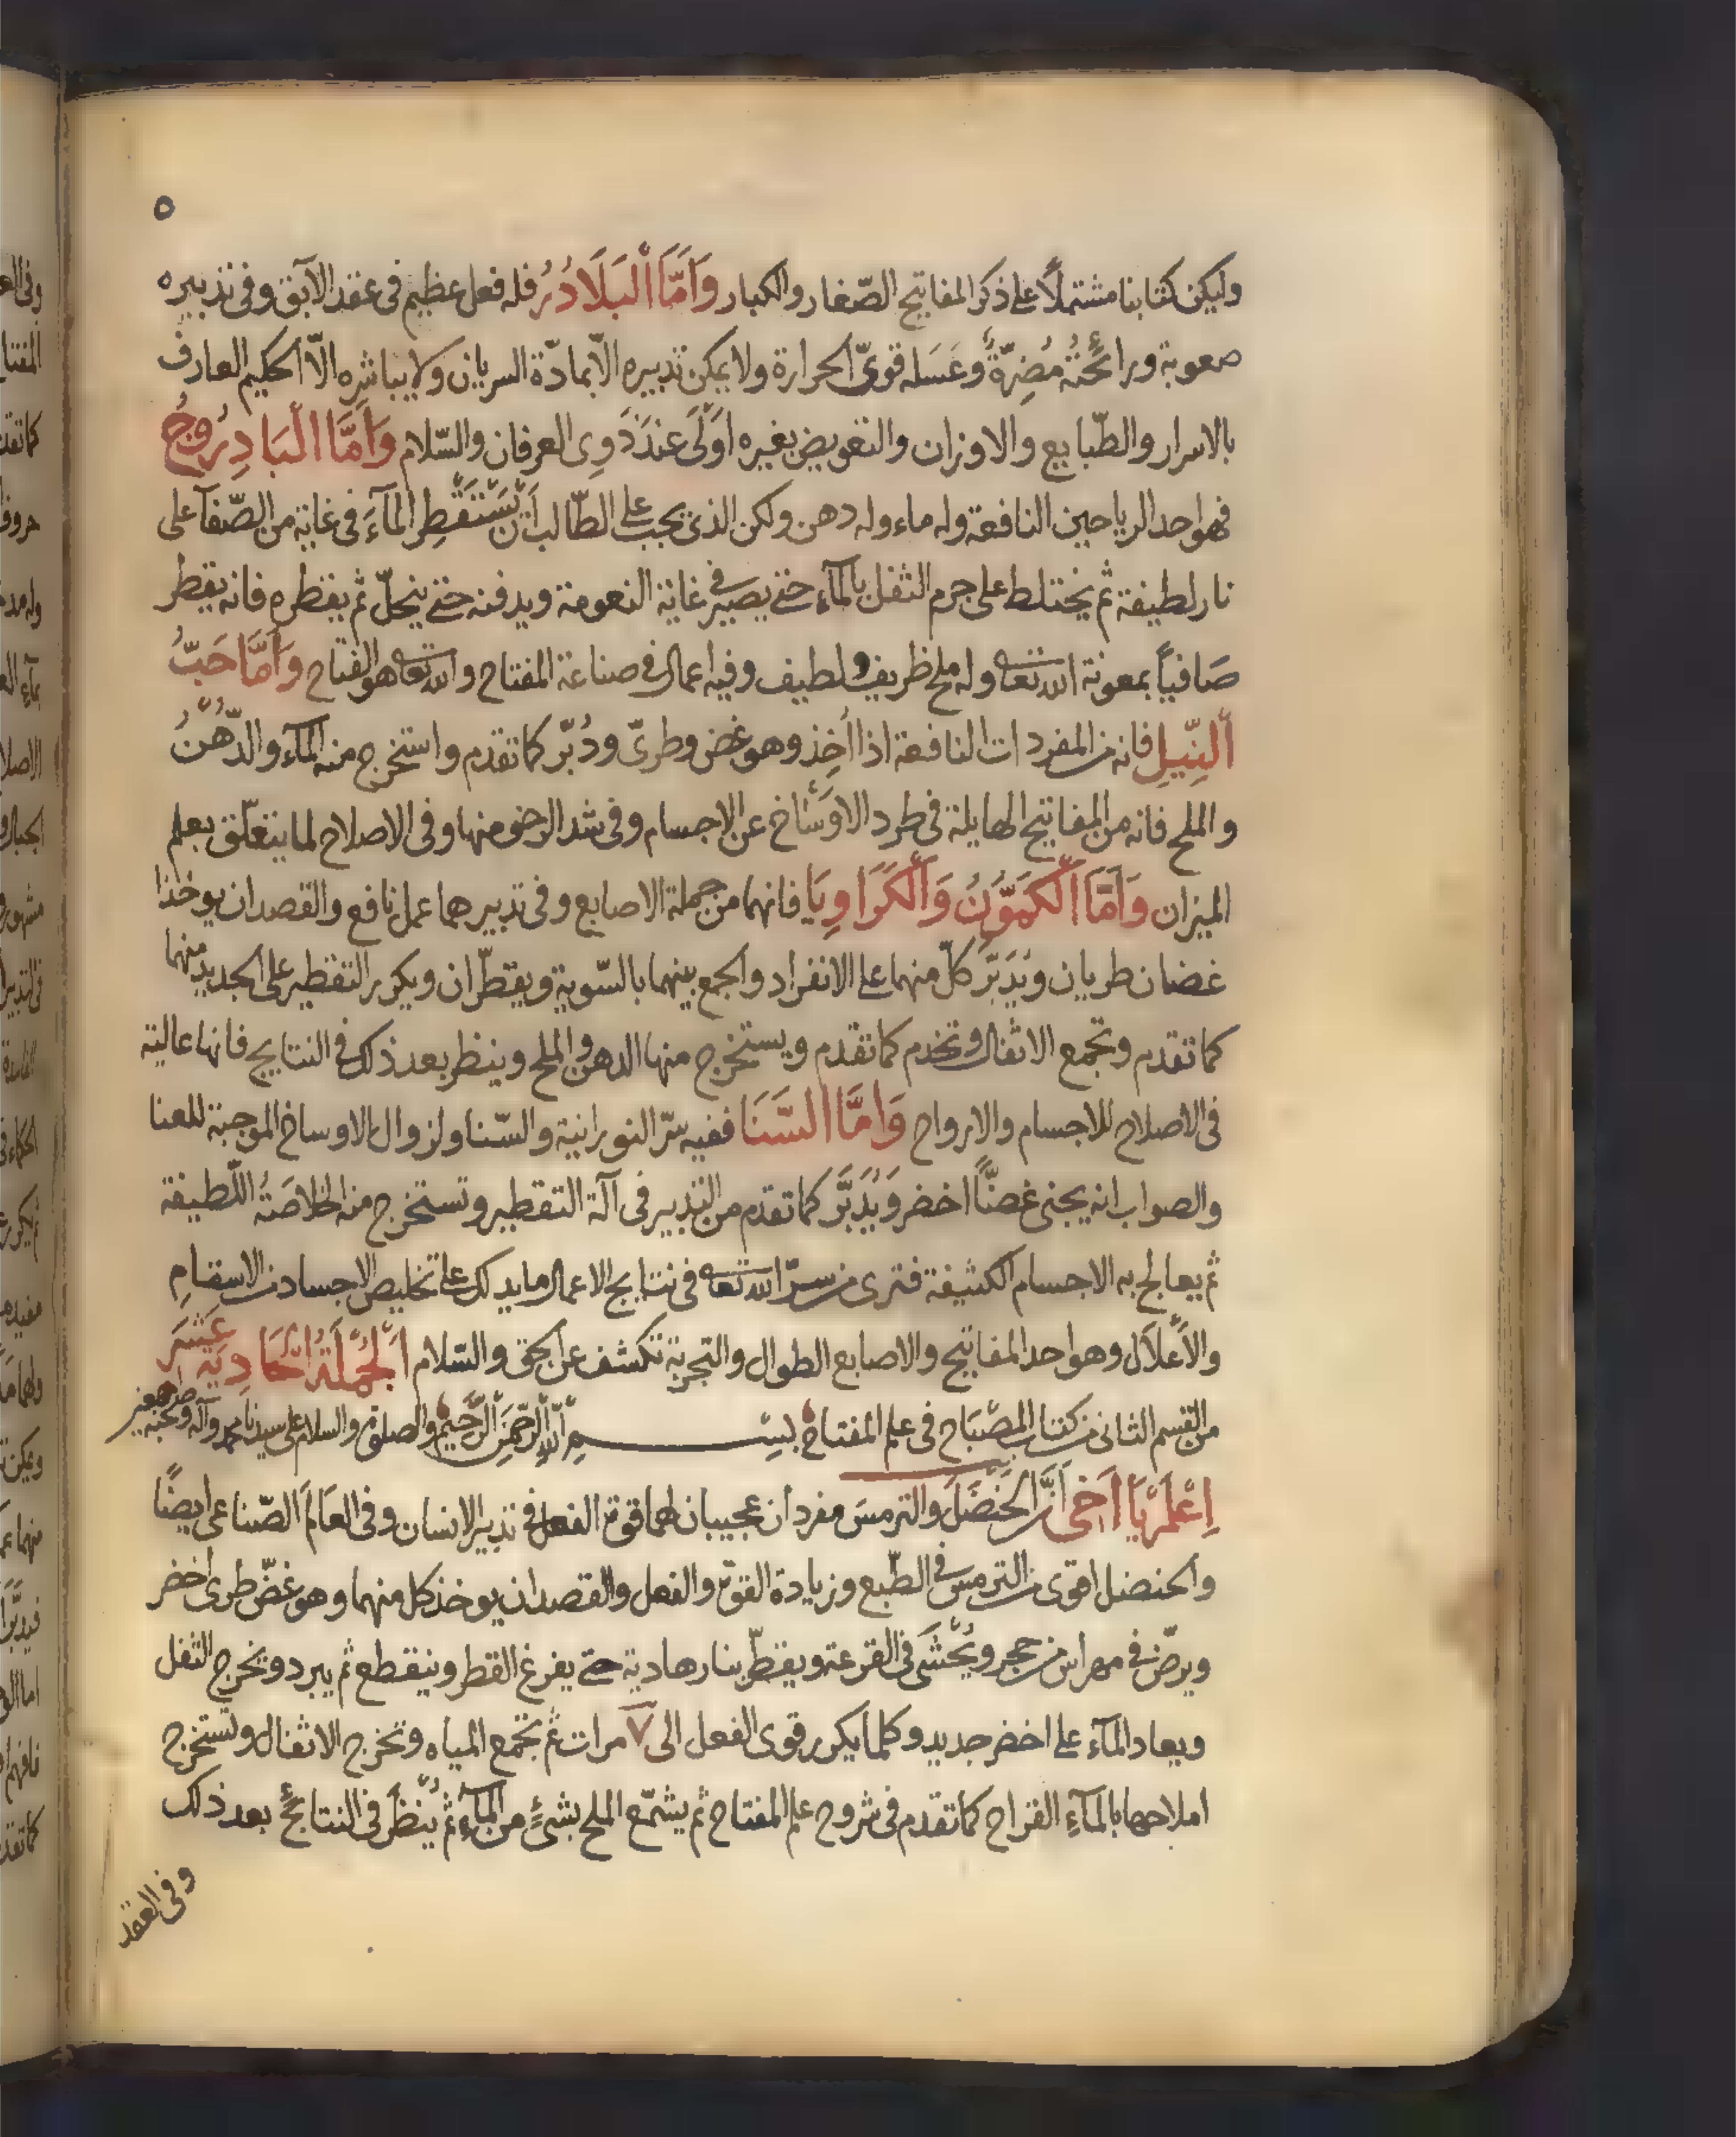 ٥
وليكن كتابنا مشتملًا على ذكر المفاتيح الصّغار والكبار وَاَمَّا اَلْبَلَادُرُ فله فعل عظيم فى عقد الآبق وفى تدبيره
صعوبة ورائحتُه مُضِرّةٌ وعَسَله قوىّ الحرارة ولا يمكن تدبيره الّا بمادّة السريان ولا يباشره الّا الحكيم العارف
بالاسرار والطّبايع والاوزان والتفويض بغيره اَوْلَى عندَ ذَوِى العرفان والسّلام وَاَمَّا الْبَادِرُوجُ
فهو احد الرياحين النافعة وله ماء وله دهن ولكن الذى يجب على الطّالب اَنْ يَسْتَقْطِر المآءَ فى غاية من الصّفآ على
نار لطيفة ثم يختلط على جرم الثفل بالمآء حتى يصير فى غاية النعومة ويدفنه حتى ينحلّ ثم يقطره فانه يقطر
صَافياً بمعونة الله تعا وله ملح ظريف ولطيف وفيه اعمال فى صناعة المفتاح والله تعا هو الفتاح وَاَمَّا حَبُّ
اَلنِّيلِ فانه من المفردات النافعة اذا اُخِذ وهو غض وطرىّ ودُبّر كما تقدم واستخرج منه المآء والدُّهْنُ
والملح فانه من المفاتيح الهايلة فى طرد الاوْسَاخ عن الاجسام وفى شد الرخو منها وفى الاصلاح لما يتعلّق بعلم
الميزان وَاَمَّا اَلْكَمَوُّنَ وَاَلْكَرَاوِيَا فانهما من جملة الاصابع وفى تدبيرهما عمل نافع والقصد ان يوخذا
غضان طريان ويُدَبَّر كلّ منهما على الانفراد والجمع بينهما بالسّوية ويقطّران ويكرر التقطير على الجديد منهما
كما تقدم وتجمع الاثفال وتخدم كما تقدم ويستخرج منها الدهن والملح وينظر بعد ذلك فى النتايج فانها عالية
فى الاصلاح للاجسام والارواح وَاَمَّا السَّنَا ففيه سرّ النورانية والسّنا ولزوال الاوساخ الموجبة للعنا
والصواب انه يجنى غصنًا اخضر وَيُدَبَّر كما تقدم من التدبير فى آلة التقطير وتستخرج منه الخلاصَةُ اللّطيفة
ثم يعالج به الاجسام الكثيفة فترى من سرّ الله تعا فى نتايج الاعمال ما يدلك على تخليص الاجساد من الاسقامِ
والأعْلَال وهو احد المفاتيح والاصابع الطوال والتجربة تكشف عن الحق والسّلام اَلْجُمْلَةُ الْحَادِيَةِ عَشَرَ
من القسم الثانى من كتاب المصْبَاح فى علم المفتاح بسِـــمِ اللهِ الرَّحْمَنِ الرَّحِيمِ والصلوة والسلام على سيدنا محمد وآله وصحبه
اِعْلَمْ يَا اَخى اَنَّ الحَنْضَلَ والترمسَ مفردان عجيبان لهما قوة الفعل فى تدبير الانسان وفى العَالَم الصّناعى ايضًا
والحنضل اقوى من الترمس فى الطّبع وزيادة القوّة والفعل والقصد ان يوخذ كل منهما وهو غضّ طرى اخضر
ويرضّ فى مهراس من حجر ويُحْشَى فى القرعة ويقطّر بنار هادية حتى يفرغ القطر وينقطع ثم يبرد ويخرج الثفل
ويعاد المآء على اخضر جديد وكلما يكرر قوى الفعل الى ٧ مرات ثم تجمع المياه وتخرج الاثفال وتستخرج
املاحها بالمآءِ القراح كما تقدم فى شروح علم المفتاح ثم يشمّع الملح بشئٍ من المآءِ ثم يُنْظَر فى النتائج بعد ذلك
وفى العقد